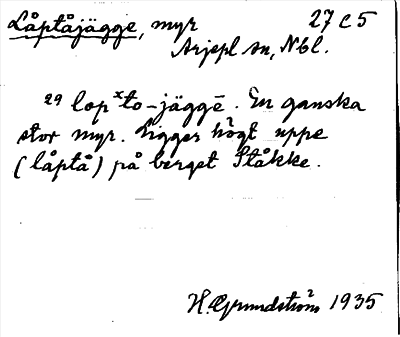 Låptåjägge, myr 27 C 5
Arjepl sn, Nbl.
29 lop ˣto-jäggē. En ganska
stor myr. Ligger högt uppe
(låptå) på berget Ståkke.
H. Grundström 1935